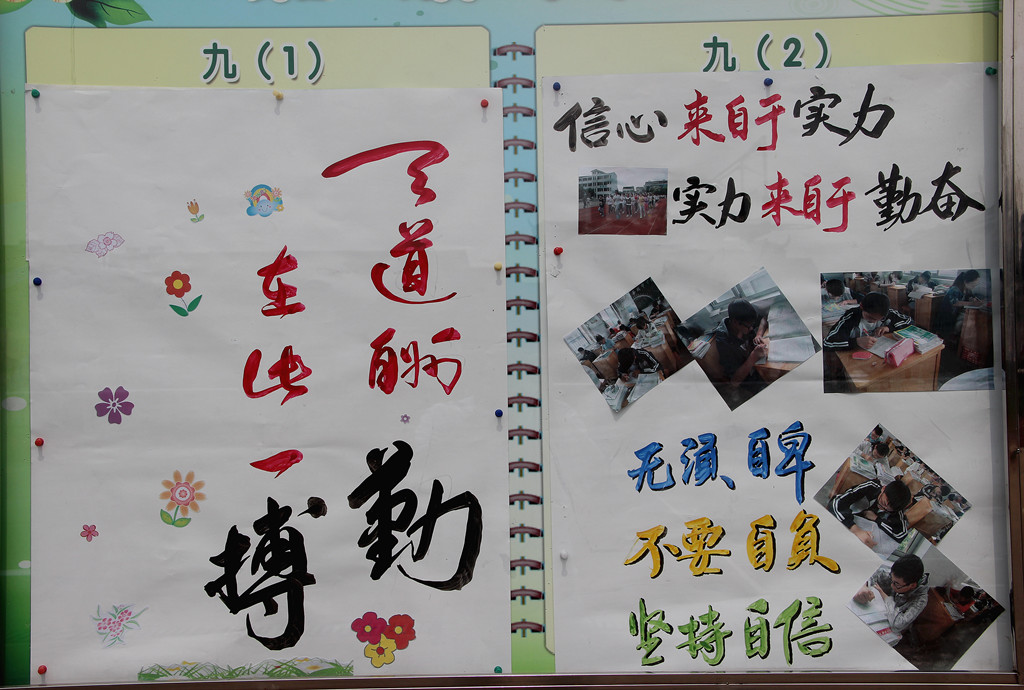 九（1）
天道酬勤
在此一搏
九（2）
信心来自于实力
实力来自于勤奋
无须自卑
不要自负
坚持自信